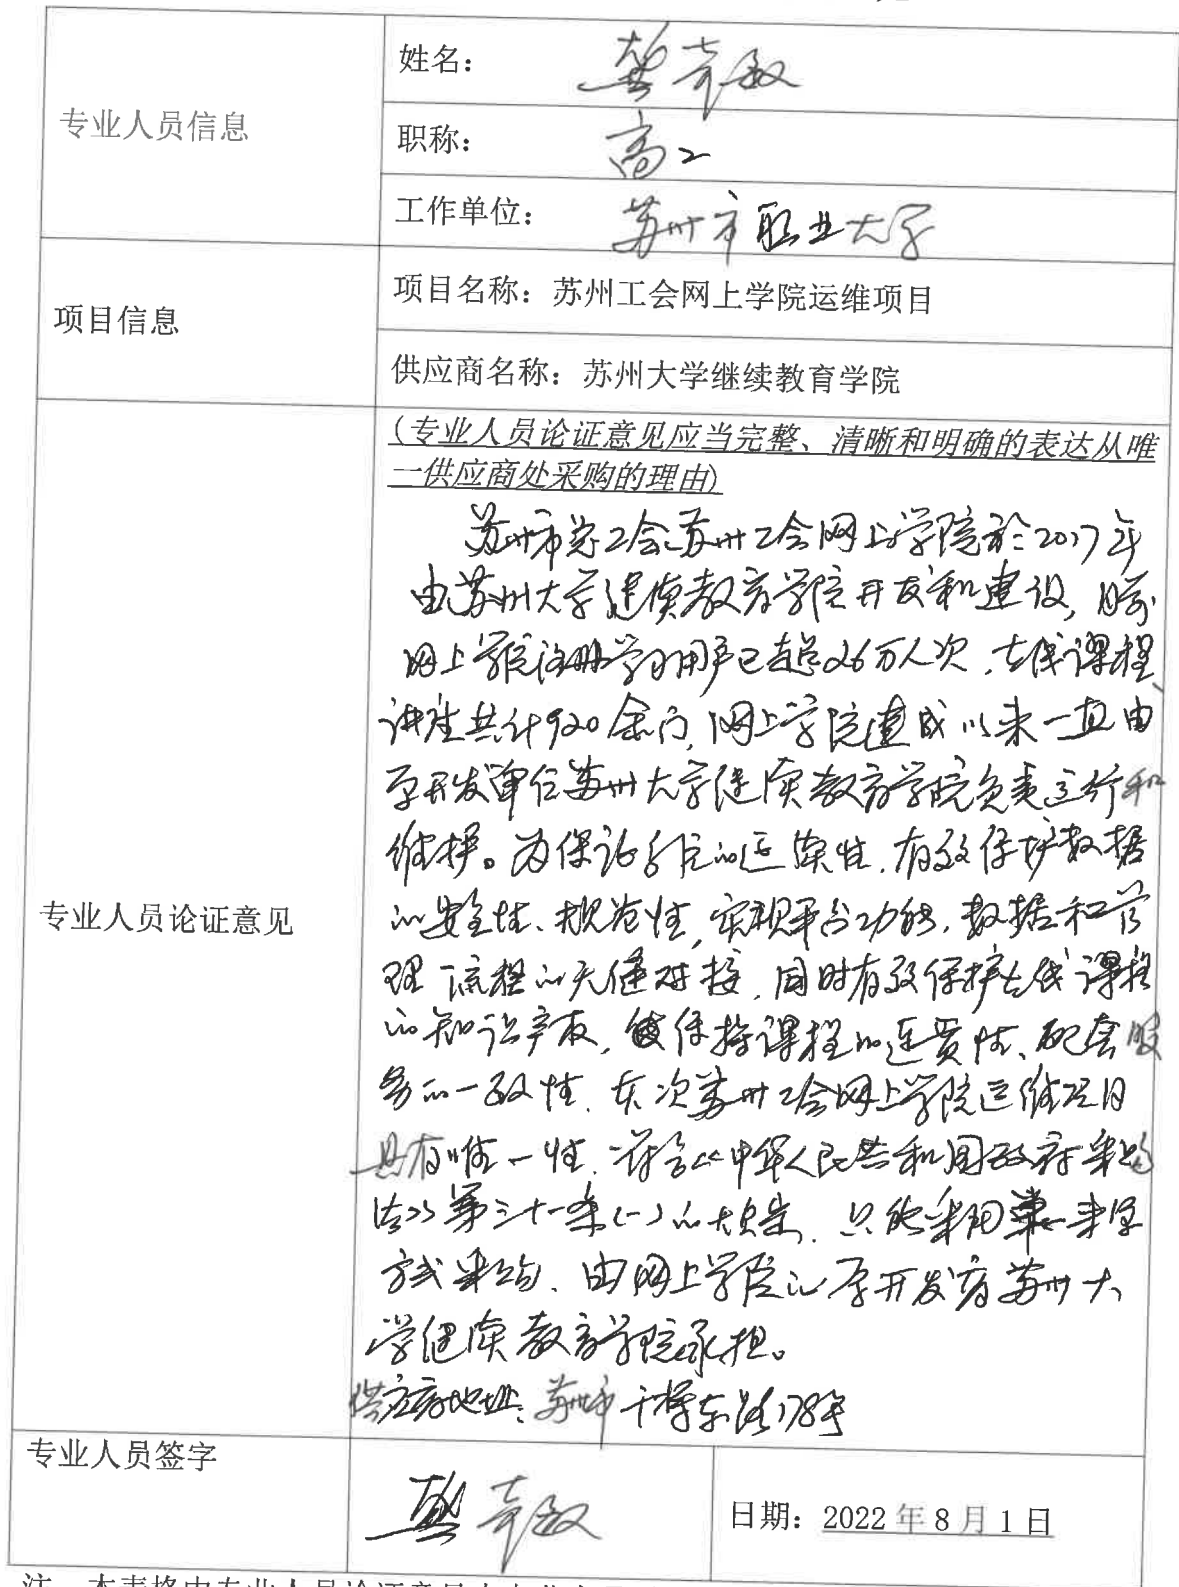 专业人员信息
姓名：龚奇敏
职称：高工
工作单位：苏州市职业大学
项目信息
项目名称：苏州工会网上学院运维项目
供应商名称：苏州大学继续教育学院
专业人员论证意见
(专业人员论证意见应当完整、清晰和明确的表达从唯
一供应商处采购的理由)
苏州市总工会苏州工会网上学院於2017年
由苏州大学继续教育学院开发和建设，目前
网上学院注册学习用户已超26万人次，在线课程、
讲座共计920余门，网上学院建成以来一直由
原开发单位苏州大学继续教育学院负责运行和
维护。为保证学院的延续性，有效保护数据
的安全性、规范性，实现平台功能，数据和管
理流程的无缝对接，同时有效保护在线课程
的知识产权，保持课程的连贯性、配套服
务的一致性，本次苏州工会网上学院运维项目
具有唯一性，符合《中华人民共和国政府采购
法》第三十一条(一)的规定，只能采用单一来源
方式采购，由网上学院的原开发商苏州大
学继续教育学院承担。
供应商地址：苏州市干将东路178号
专业人员签字
龚奇敏
日期：2022年8月1日